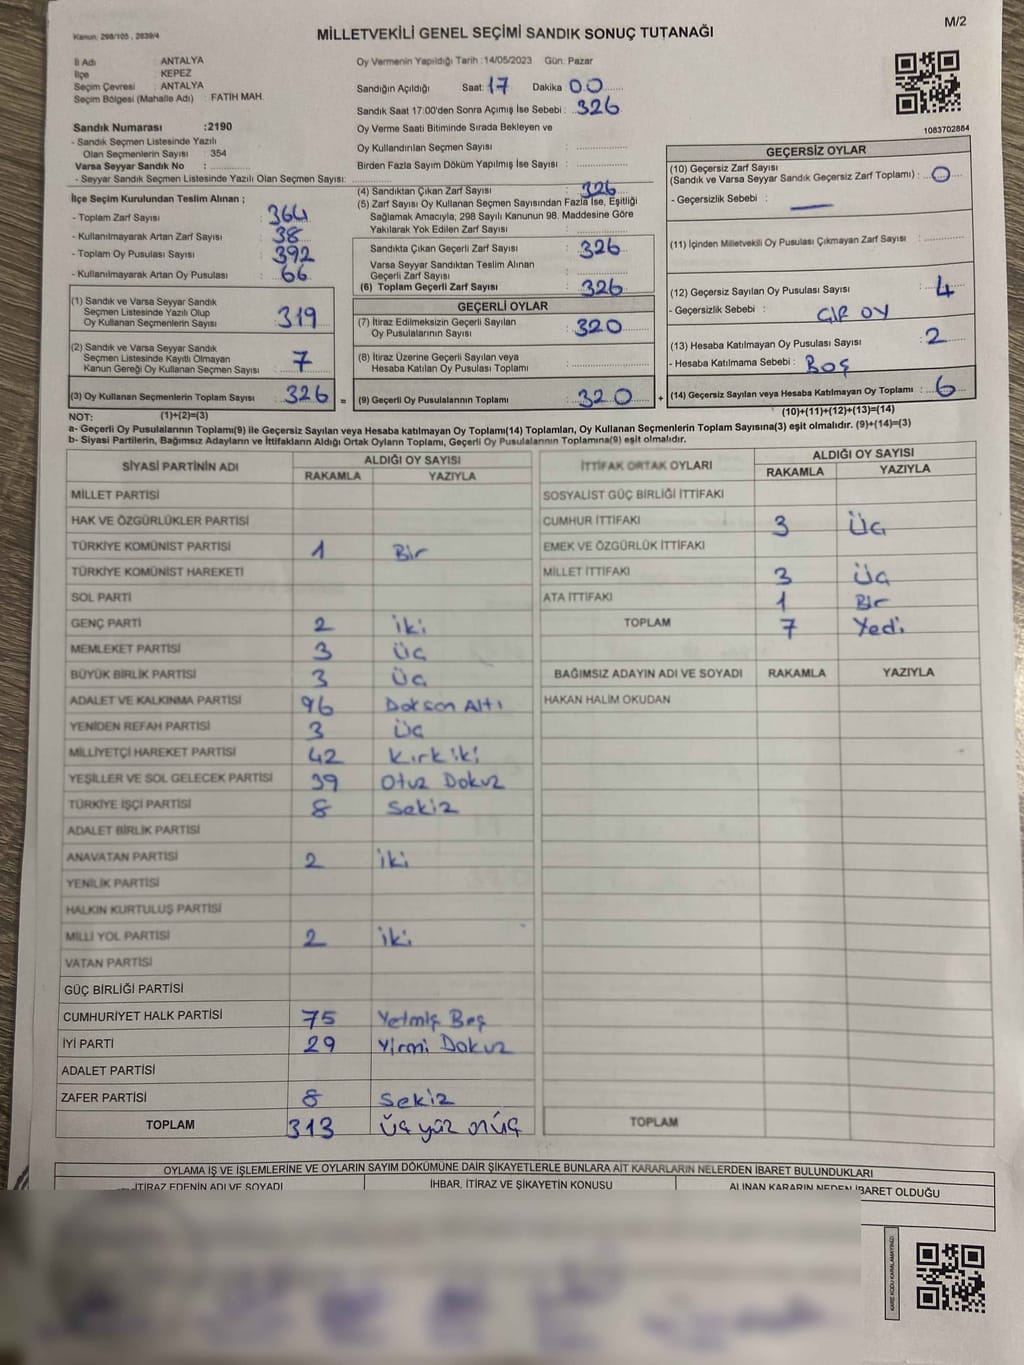 M/2
Kanun: 298/105 , 2839/4
MİLLETVEKİLİ GENEL SEÇİMİ SANDIK SONUÇ TUTANAĞI
İl Adı : ANTALYA
İlçe : KEPEZ
Seçim Çevresi : ANTALYA
Seçim Bölgesi (Mahalle Adı) : FATİH MAH.
Oy Vermenin Yapıldığı Tarih : 14/05/2023 Gün: Pazar
Sandığın Açıldığı Saat: 17 Dakika 00
Sandık Saat 17:00'den Sonra Açımış İse Sebebi : 326
Oy Verme Saati Bitiminde Sırada Bekleyen ve
Oy Kullandırılan Seçmen Sayısı :
Birden Fazla Sayım Döküm Yapılmış İse Sayısı :
1083702884
Sandık Numarası : 2190
- Sandık Seçmen Listesinde Yazılı
Olan Seçmenlerin Sayısı : 354
Varsa Seyyar Sandık No :
- Seyyar Sandık Seçmen Listesinde Yazılı Olan Seçmen Sayısı:
İlçe Seçim Kurulundan Teslim Alınan ;
- Toplam Zarf Sayısı : 364
- Kullanılmayarak Artan Zarf Sayısı : 38
- Toplam Oy Pusulası Sayısı : 392
- Kullanılmayarak Artan Oy Pusulası : 66
(1) Sandık ve Varsa Seyyar Sandık
Seçmen Listesinde Yazılı Olup
Oy Kullanan Seçmenlerin Sayısı : 319
(2) Sandık ve Varsa Seyyar Sandık
Seçmen Listesinde Kayıtlı Olmayan
Kanun Gereği Oy Kullanan Seçmen Sayısı : 7
(3) Oy Kullanan Seçmenlerin Toplam Sayısı : 326 =
(4) Sandıktan Çıkan Zarf Sayısı : 326
(5) Zarf Sayısı Oy Kullanan Seçmen Sayısından Fazla İse, Eşitliği
Sağlamak Amacıyla; 298 Sayılı Kanunun 98. Maddesine Göre
Yakılarak Yok Edilen Zarf Sayısı :
Sandıkta Çıkan Geçerli Zarf Sayısı : 326
Varsa Seyyar Sandıktan Teslim Alınan
Geçerli Zarf Sayısı :
(6) Toplam Geçerli Zarf Sayısı : 326
GEÇERLİ OYLAR
(7) İtiraz Edilmeksizin Geçerli Sayılan
Oy Pusulalarının Sayısı : 320
(8) İtiraz Üzerine Geçerli Sayılan veya
Hesaba Katılan Oy Pusulası Toplamı :
(9) Geçerli Oy Pusulalarının Toplamı : 320 +
GEÇERSİZ OYLAR
(10) Geçersiz Zarf Sayısı
(Sandık ve Varsa Seyyar Sandık Geçersiz Zarf Toplamı) : 0
- Geçersizlik Sebebi : —
(11) İçinden Milletvekili Oy Pusulası Çıkmayan Zarf Sayısı :
(12) Geçersiz Sayılan Oy Pusulası Sayısı : 4
- Geçersizlik Sebebi : ÇİR OY
(13) Hesaba Katılmayan Oy Pusulası Sayısı : 2
- Hesaba Katılmama Sebebi : BOŞ
(14) Geçersiz Sayılan veya Hesaba Katılmayan Oy Toplamı : 6
NOT: (1)+(2)=(3)
(10)+(11)+(12)+(13)=(14)
a- Geçerli Oy Pusulasının Toplamı(9) ile Geçersiz Sayılan veya Hesaba katılmayan Oy Toplamı(14) Toplamları, Oy Kullanan Seçmenlerin Toplam Sayısına(3) eşit olmalıdır. (9)+(14)=(3)
b- Siyasi Partilerin, Bağımsız Adayların ve İttifakların Aldığı Ortak Oyların Toplamı, Geçerli Oy Pusulalarının Toplamına(9) eşit olmalıdır.
SİYASİ PARTİNİN ADI ALDIĞI OY SAYISI
RAKAMLA YAZIYLA
MİLLET PARTİSİ
HAK VE ÖZGÜRLÜKLER PARTİSİ
TÜRKİYE KOMÜNİST PARTİSİ 1 Bir
TÜRKİYE KOMÜNİST HAREKETİ
SOL PARTİ
GENÇ PARTİ 2 iki
MEMLEKET PARTİSİ 3 Üç
BÜYÜK BİRLİK PARTİSİ 3 Üç
ADALET VE KALKINMA PARTİSİ 96 Doksan Altı
YENİDEN REFAH PARTİSİ 3 Üç
MİLLİYETÇİ HAREKET PARTİSİ 42 Kırk iki
YEŞİLLER VE SOL GELECEK PARTİSİ 39 Otuz Dokuz
TÜRKİYE İŞÇİ PARTİSİ 8 Sekiz
ADALET BİRLİK PARTİSİ
ANAVATAN PARTİSİ 2 iki
YENİLİK PARTİSİ
HALKIN KURTULUŞ PARTİSİ
MİLLİ YOL PARTİSİ 2 iki
VATAN PARTİSİ
GÜÇ BİRLİĞİ PARTİSİ
CUMHURİYET HALK PARTİSİ 75 Yetmiş Beş
İYİ PARTİ 29 Yirmi Dokuz
ADALET PARTİSİ
ZAFER PARTİSİ 8 Sekiz
TOPLAM 313 Üç yüz onüç
İTTİFAK ORTAK OYLARI ALDIĞI OY SAYISI
RAKAMLA YAZIYLA
SOSYALİST GÜÇ BİRLİĞİ İTTİFAKI
CUMHUR İTTİFAKI 3 Üç
EMEK VE ÖZGÜRLÜK İTTİFAKI
MİLLET İTTİFAKI 3 Üç
ATA İTTİFAKI 1 Bir
TOPLAM 7 Yedi
BAĞIMSIZ ADAYIN ADI VE SOYADI RAKAMLA YAZIYLA
HAKAN HALİM OKUDAN
TOPLAM
OYLAMA İŞ VE İŞLEMLERİNE VE OYLARIN SAYIM DÖKÜMÜNE DAİR ŞİKAYETLERLE BUNLARA AİT KARARLARIN NELERDEN İBARET BULUNDUKLARI
İTİRAZ EDENİN ADI VE SOYADI İHBAR, İTİRAZ VE ŞİKAYETİN KONUSU ALINAN KARARIN NEDEN İBARET OLDUĞU
KARE KODU KARALAMAYINIZ!